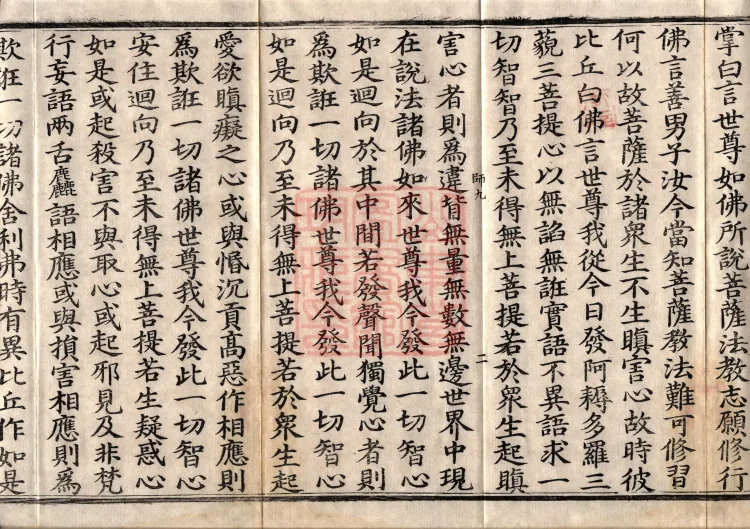 掌白言世尊如佛所說菩薩法教志願修行
佛言善男子汝今當知菩薩教法難可修習
何以故菩薩於諸衆生不生瞋害心故時彼
比丘白佛言世尊我從今日發阿耨多羅三
藐三菩提心以無諂無誑實語不異語求一
切智智乃至未得無上菩提若於衆生起瞋
師九 二
害心者則爲違背無量無數無邊世界中現
在說法諸佛如來世尊我今發此一切智心
如是迴向於其中間若發聲聞獨覺心者則
爲欺誑一切諸佛世尊我今發此一切智心
如是迴向乃至未得無上菩提若於衆生起
愛欲瞋癡之心或與惛沉貢高惡作相應則
爲欺誑一切諸佛世尊我今發此一切智心
安住迴向乃至未得無上菩提若生疑惑心
如是或起殺害不與取心或起邪見及非梵
行妄語兩舌麤語相應或與損害相應則爲
欺誑一切諸佛舍利弗時有異比丘作如是